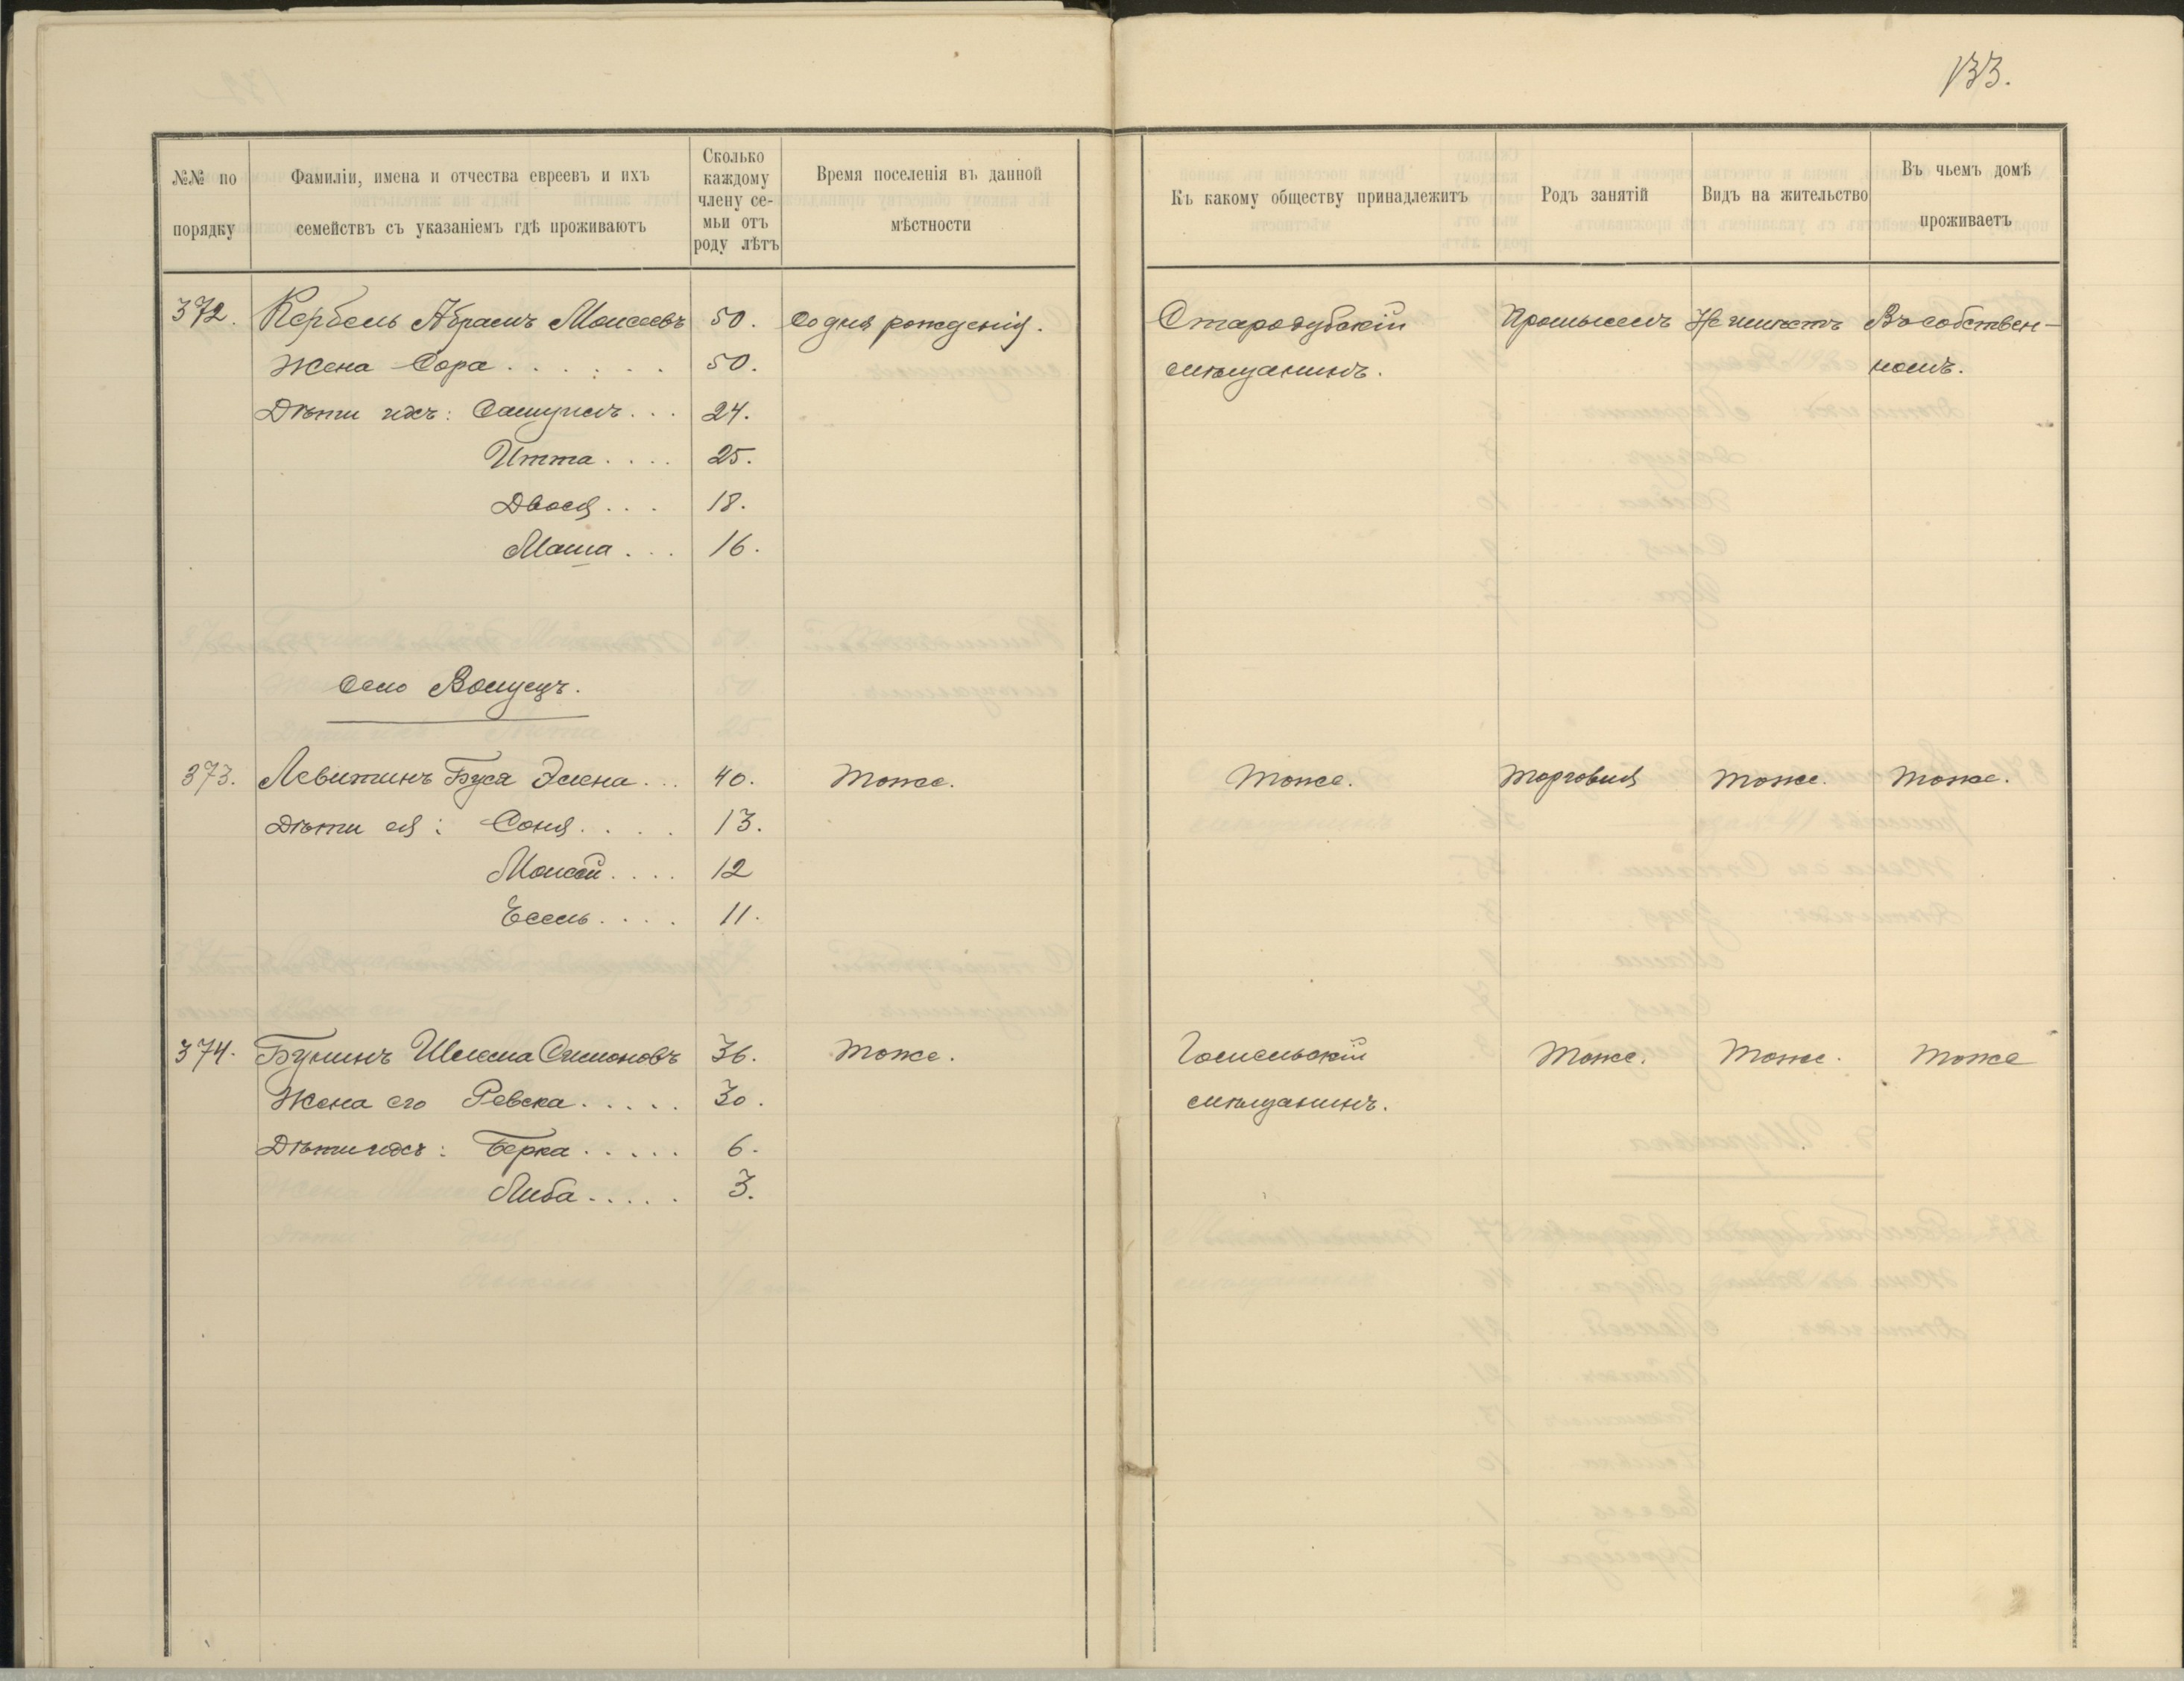 133.
№№ по порядку
Фамиліи, имена и отчества евреевъ и ихъ семействъ съ указаніемъ гдѣ проживаютъ
Сколько каждому члену се-мьи отъ роду лѣтъ
Время поселенія въ данной мѣстности
Къ какому обществу принадлежитъ
Родъ занятій
Видъ на жительство
Въ чьемъ домѣ проживаетъ
372. Кербель Абрамъ Моисеевъ 50. Со дня рожденія. Стародубскій Промыселъ Не имѣетъ Въ собствен-
Жена Сора . . . . . . 50. мѣщанинъ. номъ.
Дѣти ихъ: Самуилъ . . . 24.
Итта . . . . 25.
Двося . . . 18.
Маша . . . 16.
Село
373. Левитинъ Буся . . . 40. тоже. тоже. торговля тоже. тоже.
Дѣти ея: Соня . . . . 13.
Моисей . . . . 12
Есель . . . . 11.
374. Бунинъ Шлема Симоновъ 36. тоже. Гомельскій тоже. тоже. тоже
Жена его Ревека . . . . . 30. мѣщанинъ.
Дѣти ихъ: Берка . . . . . 6.
Либа . . . . . 3.